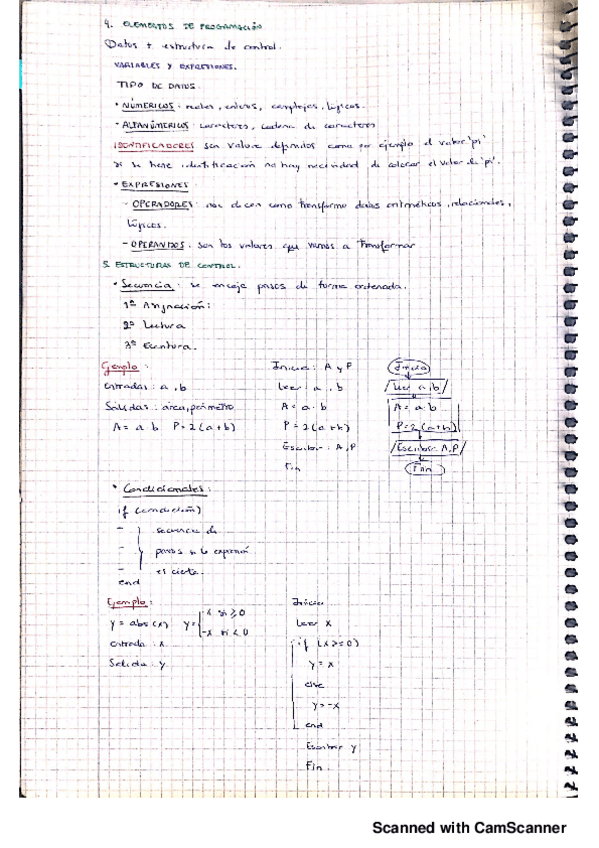 4. ELEMENTOS DE PROGRAMACIÓN
Datos + estructura de control.
VARIABLES Y EXPRESIONES.
TIPO DE DATOS.
• NÚMERICOS: reales, enteros, complejos, lógicos.
• ALFANÚMERICOS: caracteres, cadena de caracteres
IDENTIFICADORES son valores definidos como por ejemplo el valor 'pi'
si se hace identificación no hay necesidad de colocar el valor de 'pi'.
• EXPRESIONES
- OPERADORES: nos dicen como transformo datos aritméticos, relacionales,
lógicos.
- OPERANDOS. son los valores que vamos a transformar
5. ESTRUCTURAS DE CONTROL.
• Secuencia: se encaje pasos de forma ordenada.
1º Asignación:
2º Lectura
3º Escritura.
Ejemplo:
Entradas: a, b
Salidas: área, perímetro
A = a·b P = 2(a+b)
Inicio: A y P
Leer: a, b
A = a·b
P = 2(a+b)
Escribir: A, P
Fin
Inicio
Leer a, b
A = a·b
P = 2(a+b)
Escribir A, P
Fin
• Condicionales:
if (condición)
- secuencia de
- pasos si la expresión
- es cierta.
end
Ejemplo:
y = abs(x) y = { x si ≥ 0
-x si < 0
entrada: x
Salida: y
Inicio
Leer x
if (x >= 0)
y = x
else
y = -x
end
Escribir y
Fin.
Scanned with CamScanner